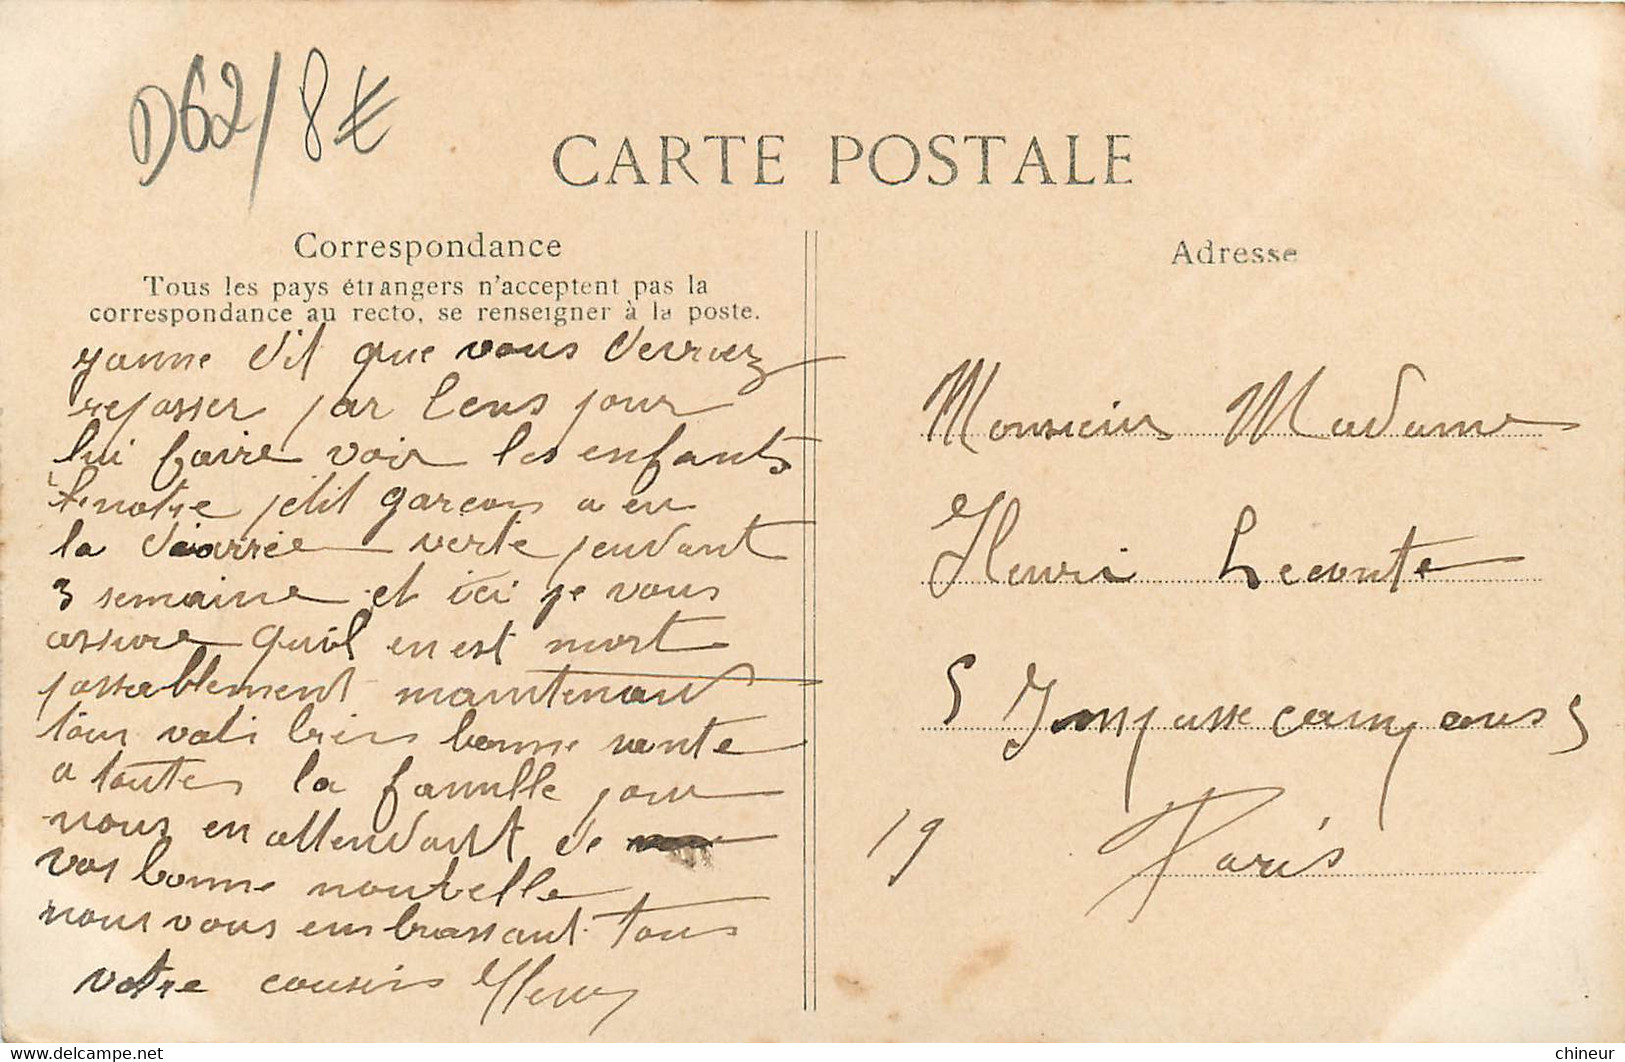 D62/8€
CARTE POSTALE
Correspondance
Tous les pays étrangers n'acceptent pas la
correspondance au recto, se renseigner à la poste.
yanne dit que vous devriez
repasser par Lens pour
lui faire voir les enfants
notre petit garcon a eu
la diarrée verte pendant
3 semaine et ici je vous
assure quil en est mort
passablement maintenant
tous va bien bonne sante
a toutes la famille pour
nous en attendant de
vos bonne nouvelle
nous vous embrassant tous
votre cousin Henry
Adresse
Monsieur Madame
Henri Leconte
5 Impasse compans 5
19 Paris
chineur